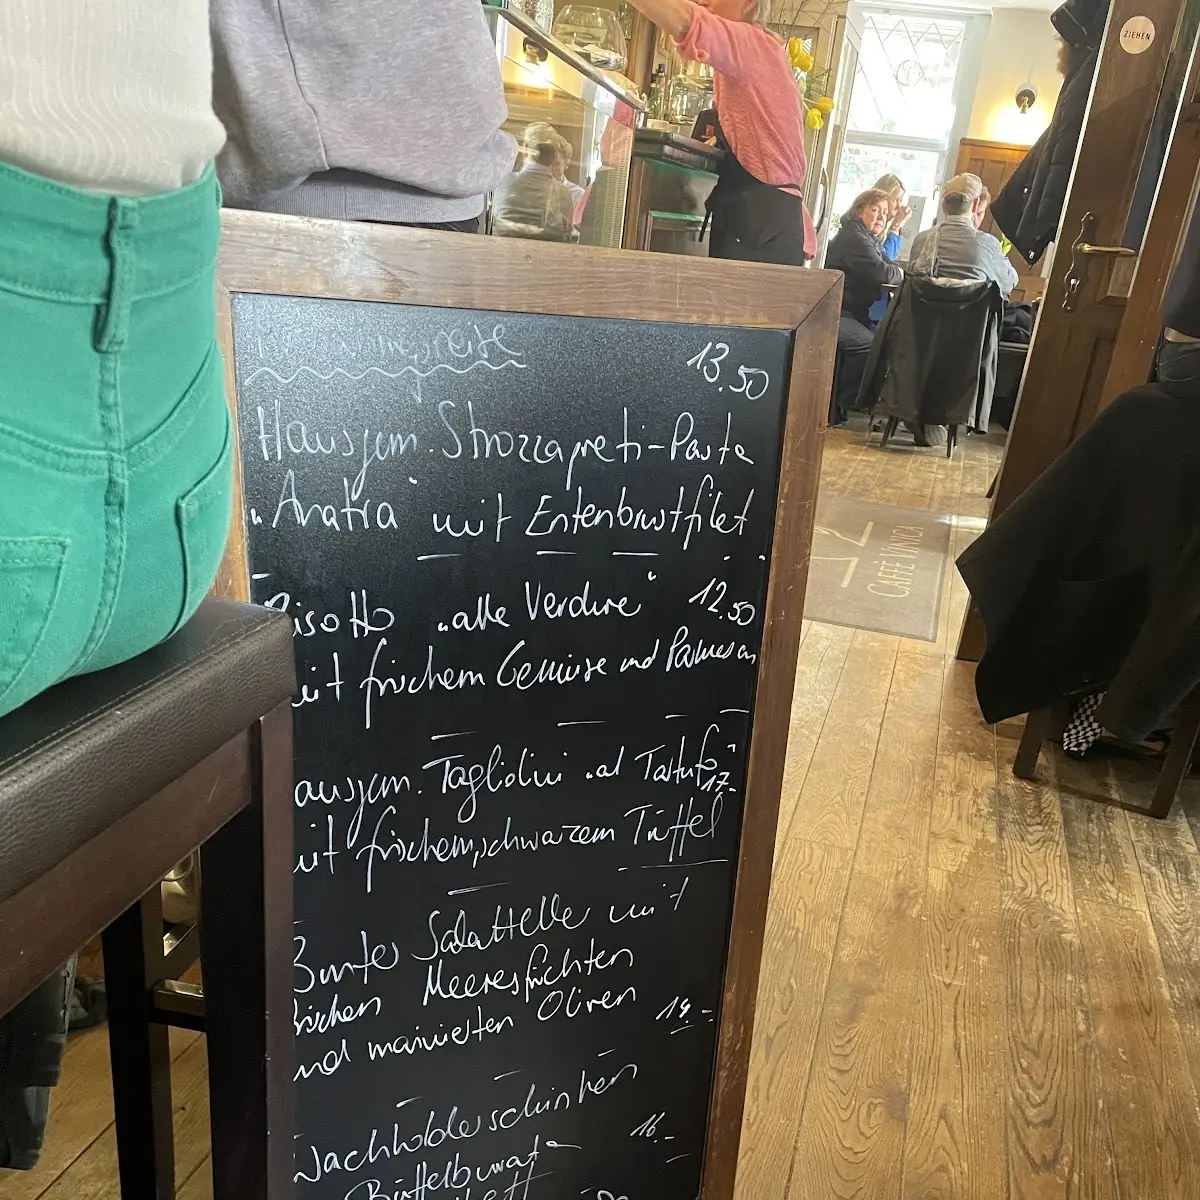 ZIEHEN
13.50
Hausgem. Strozzapreti-Pasta
„Anatra“ mit Entenbrustfilet
Risotto „alle Verdure“ 12.50
mit frischem Gemüse und Parmesan
ausgem. Tagliolini „al Tartufo“
17.-
mit frischem, schwarzem Trüffel
Bunter Salatteller mit
frischen Meeresfrüchten
und marinierten Oliven
14.-
Wacholderschinken
16.-
Büffelburrata
CAFFÈ VINICA